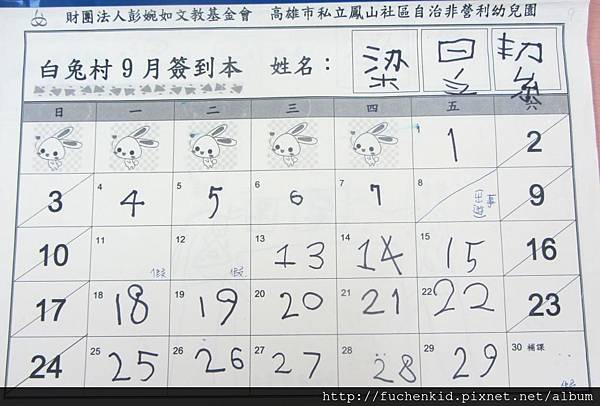 財團法人彭婉如文教基金會 高雄市私立鳳山社區自治非營利幼兒園
白兔村9月簽到本 姓名： 梁
日 一 二 三 四 五 六
1 2
3 4 4 5 5 6 6 7 7 8 9
10 11 12 13 13 14 14 15 15 16
17 18 18 19 19 20 20 21 21 22 22 23
24 25 25 26 26 27 27 28 28 29 29 30 補課
http://fuchenkid.pixnet.net/album